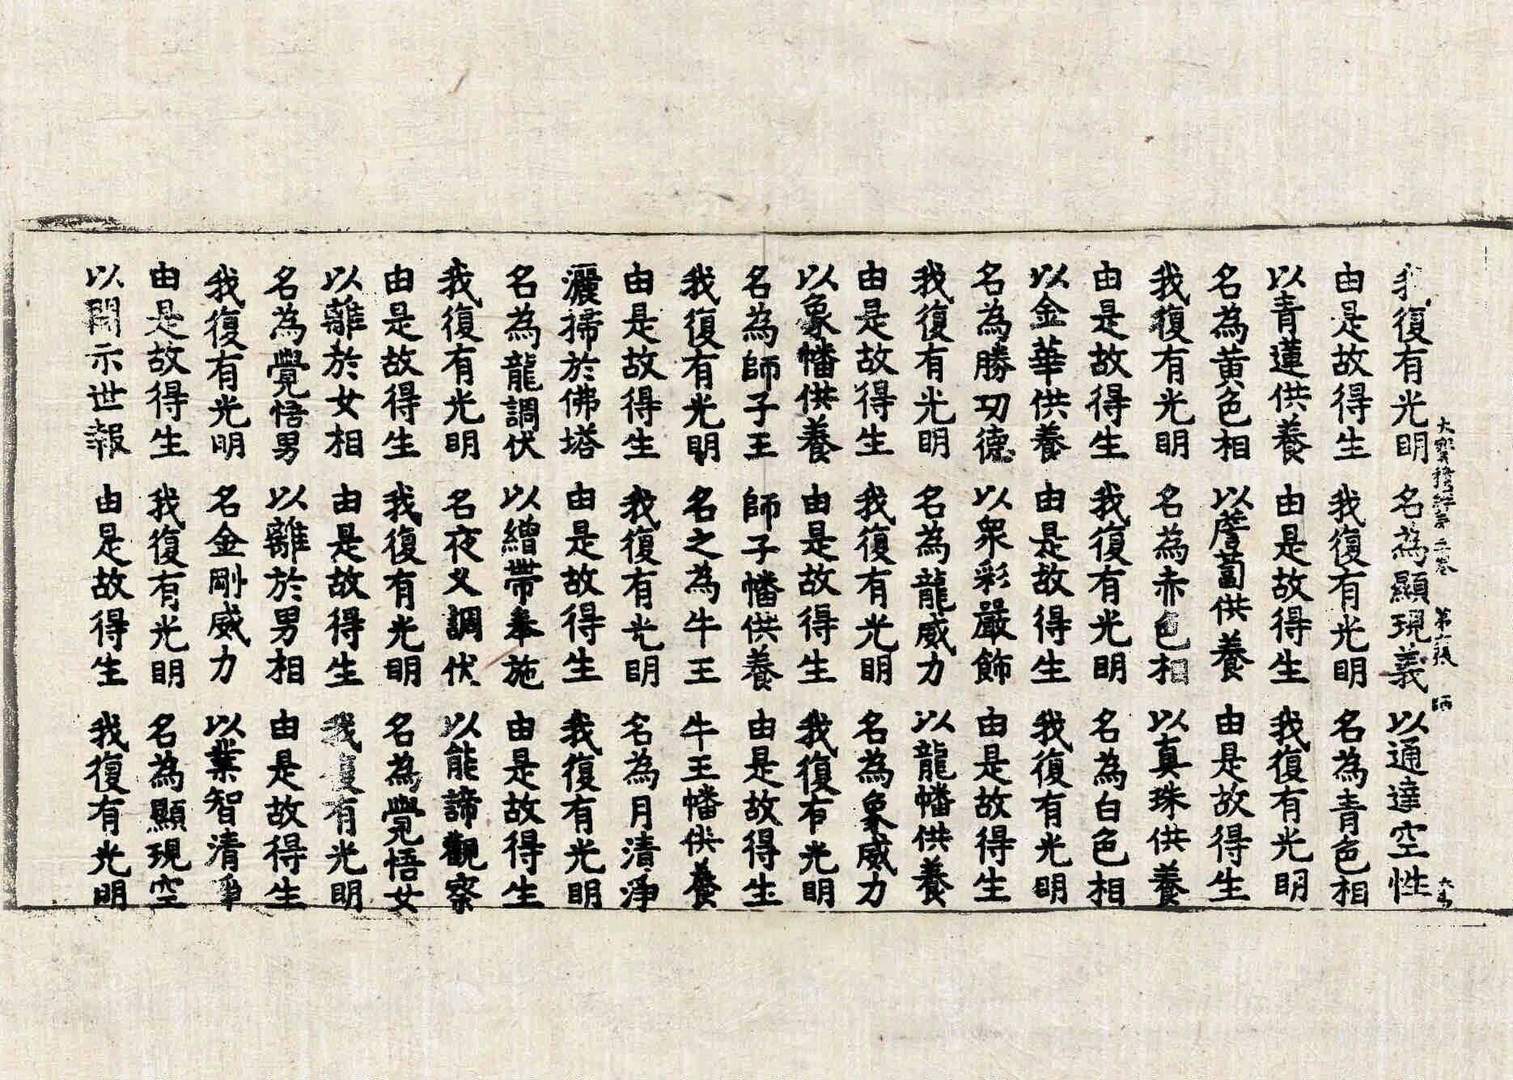 大寶積經 卷 第 張 師
我復有光明 名為顯現義 以通達空性
由是故得生 我復有光明 名為青色相
以青蓮供養 由是故得生 我復有光明
名為黃色相 以詹蔔供養 由是故得生
我復有光明 名為赤色相 以真珠供養
由是故得生 我復有光明 名為白色相
以金華供養 由是故得生 我復有光明
名為勝功德 以眾彩嚴飾 由是故得生
我復有光明 名為龍威力 以龍幡供養
由是故得生 我復有光明 名為象威力
以象幡供養 由是故得生 我復有光明
名為師子王 師子幡供養 由是故得生
我復有光明 名之為牛王 牛王幡供養
由是故得生 我復有光明 名為月清淨
灑掃於佛塔 由是故得生 我復有光明
名為龍調伏 以繒帶奉施 由是故得生
我復有光明 名夜叉調伏 以能諦觀察
由是故得生 我復有光明 名為覺悟女
以離於女相 由是故得生 我復有光明
名為覺悟男 以離於男相 由是故得生
我復有光明 名金剛威力 以業智清淨
由是故得生 我復有光明 名為顯現空
以開示世報 由是故得生 我復有光明